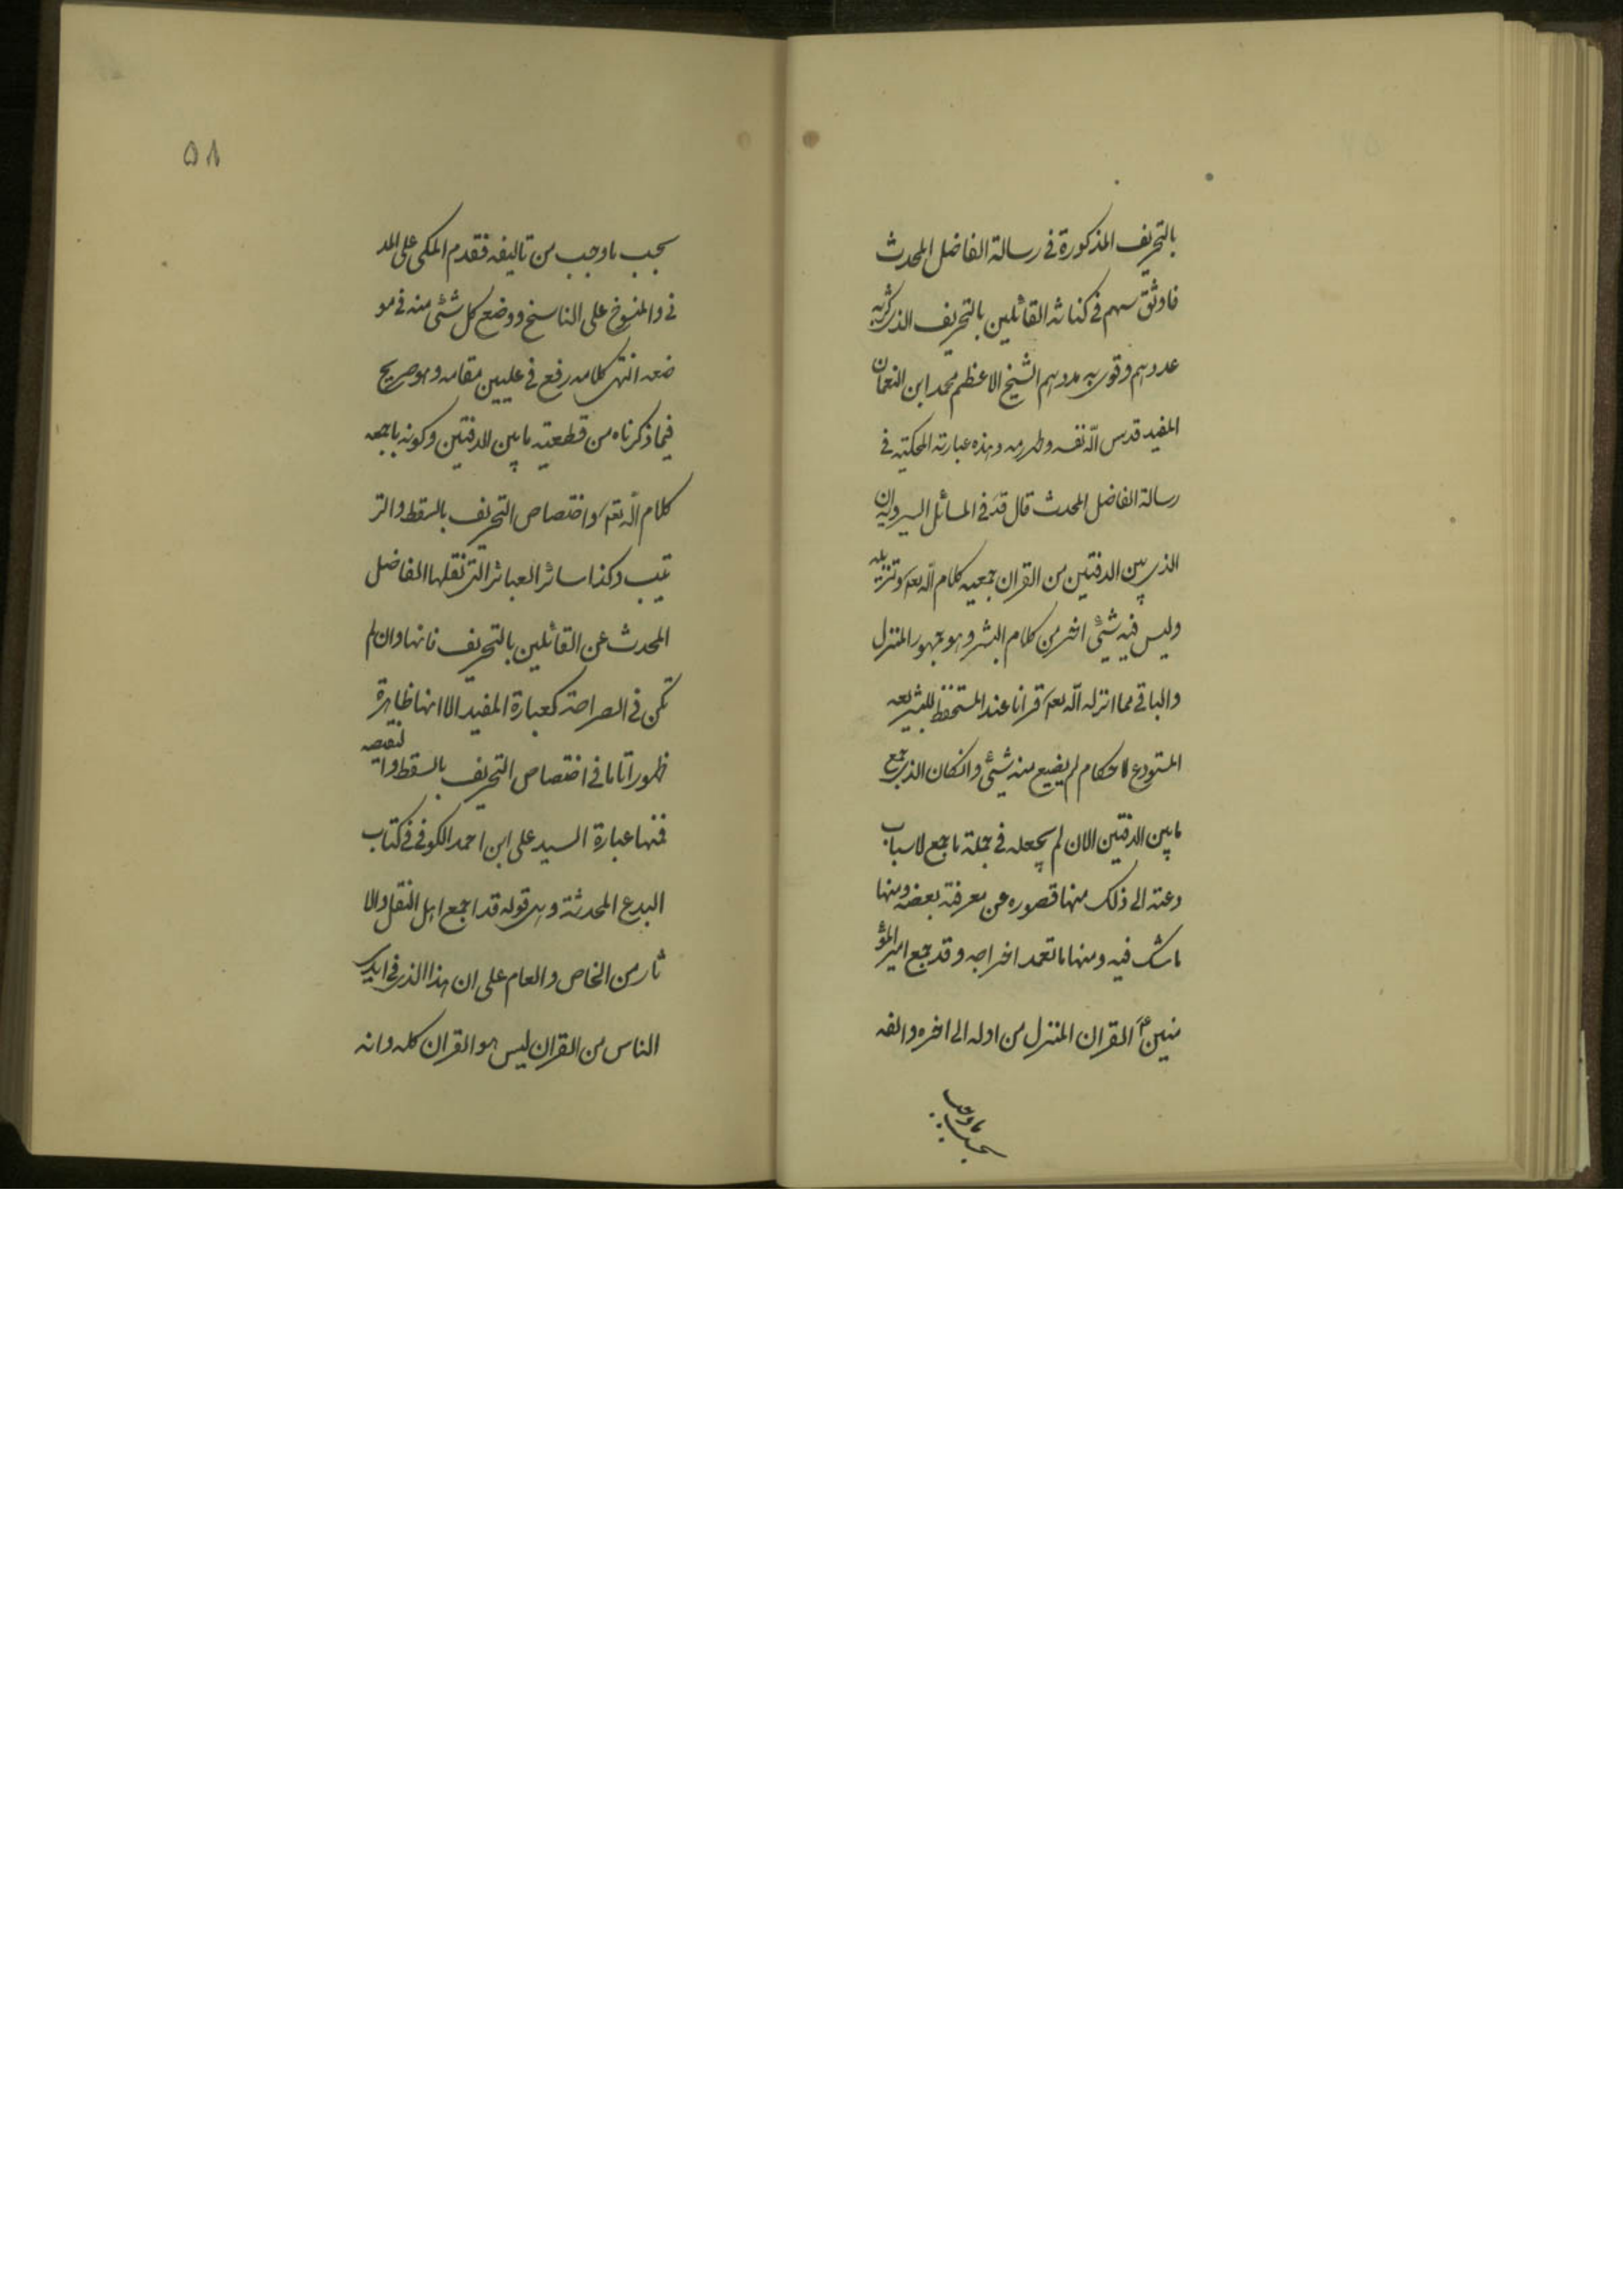 بالتحريف المذكورة في رسالة الفاضل المحدث
فاوثق سهم في كنانة القائلين بالتحريف الذي كثر به
عددهم وقوي به مددهم الشيخ الاعظم محمد ابن النعمان
المفيد قدس الله نفسه وطهر رمسه وهذه عبارته المحكية في
رسالة الفاضل المحدث قال قده في المسائل السرويه ان
الذي بين الدفتين من القران جميعه كلام الله تعم وتنزيله
وليس فيه شيئ اخر من كلام البشر وهو جمهور المنزل
والباقي مما انزله الله تعم قرانا عند المستحفظ للشريعه
المستودع للاحكام لم يضيع منه شيئ وانكان الذي جمع
ما بين الدفتين الان لم يجعله في جملة ما جمع لاسباب
دعته الى ذلك منها قصوره عن معرفة بعضه ومنها
ما شك فيه ومنها ما تعمد اخراجه وقد جمع امير المؤ
منين ع القران المنزل من اوله الى اخره والفه
بحسب ما وجب
۵۸
بحسب ما وجب من تاليفه فقدم المكي على المد
ني والمنسوخ على الناسخ ووضع كل شئ منه في مو
ضعه انتهى كلامه رفع في عليين مقامه وهو صريح
فيما ذكرناه من قطعيته ما بين الدفتين وكونه باجمعه
كلام الله تعم واختصاص التحريف بالسقط والتر
تيب وكذا سائر العبائر التي نقلها الفاضل
المحدث عن القائلين بالتحريف فانها وان لم
تكن في الصراحة كعبارة المفيد الا انها ظاهرة
ظهورا تاما في اختصاص التحريف بالسقط والنقيصه
فمنها عبارة السيد على ابن احمد الكوفي في كتاب
البدع المحدثة وهي قوله قد اجمع اهل النقل والا
ثار من الخاص والعام على ان هذا الذي في ايدي
الناس من القران ليس هو القران كله وانه